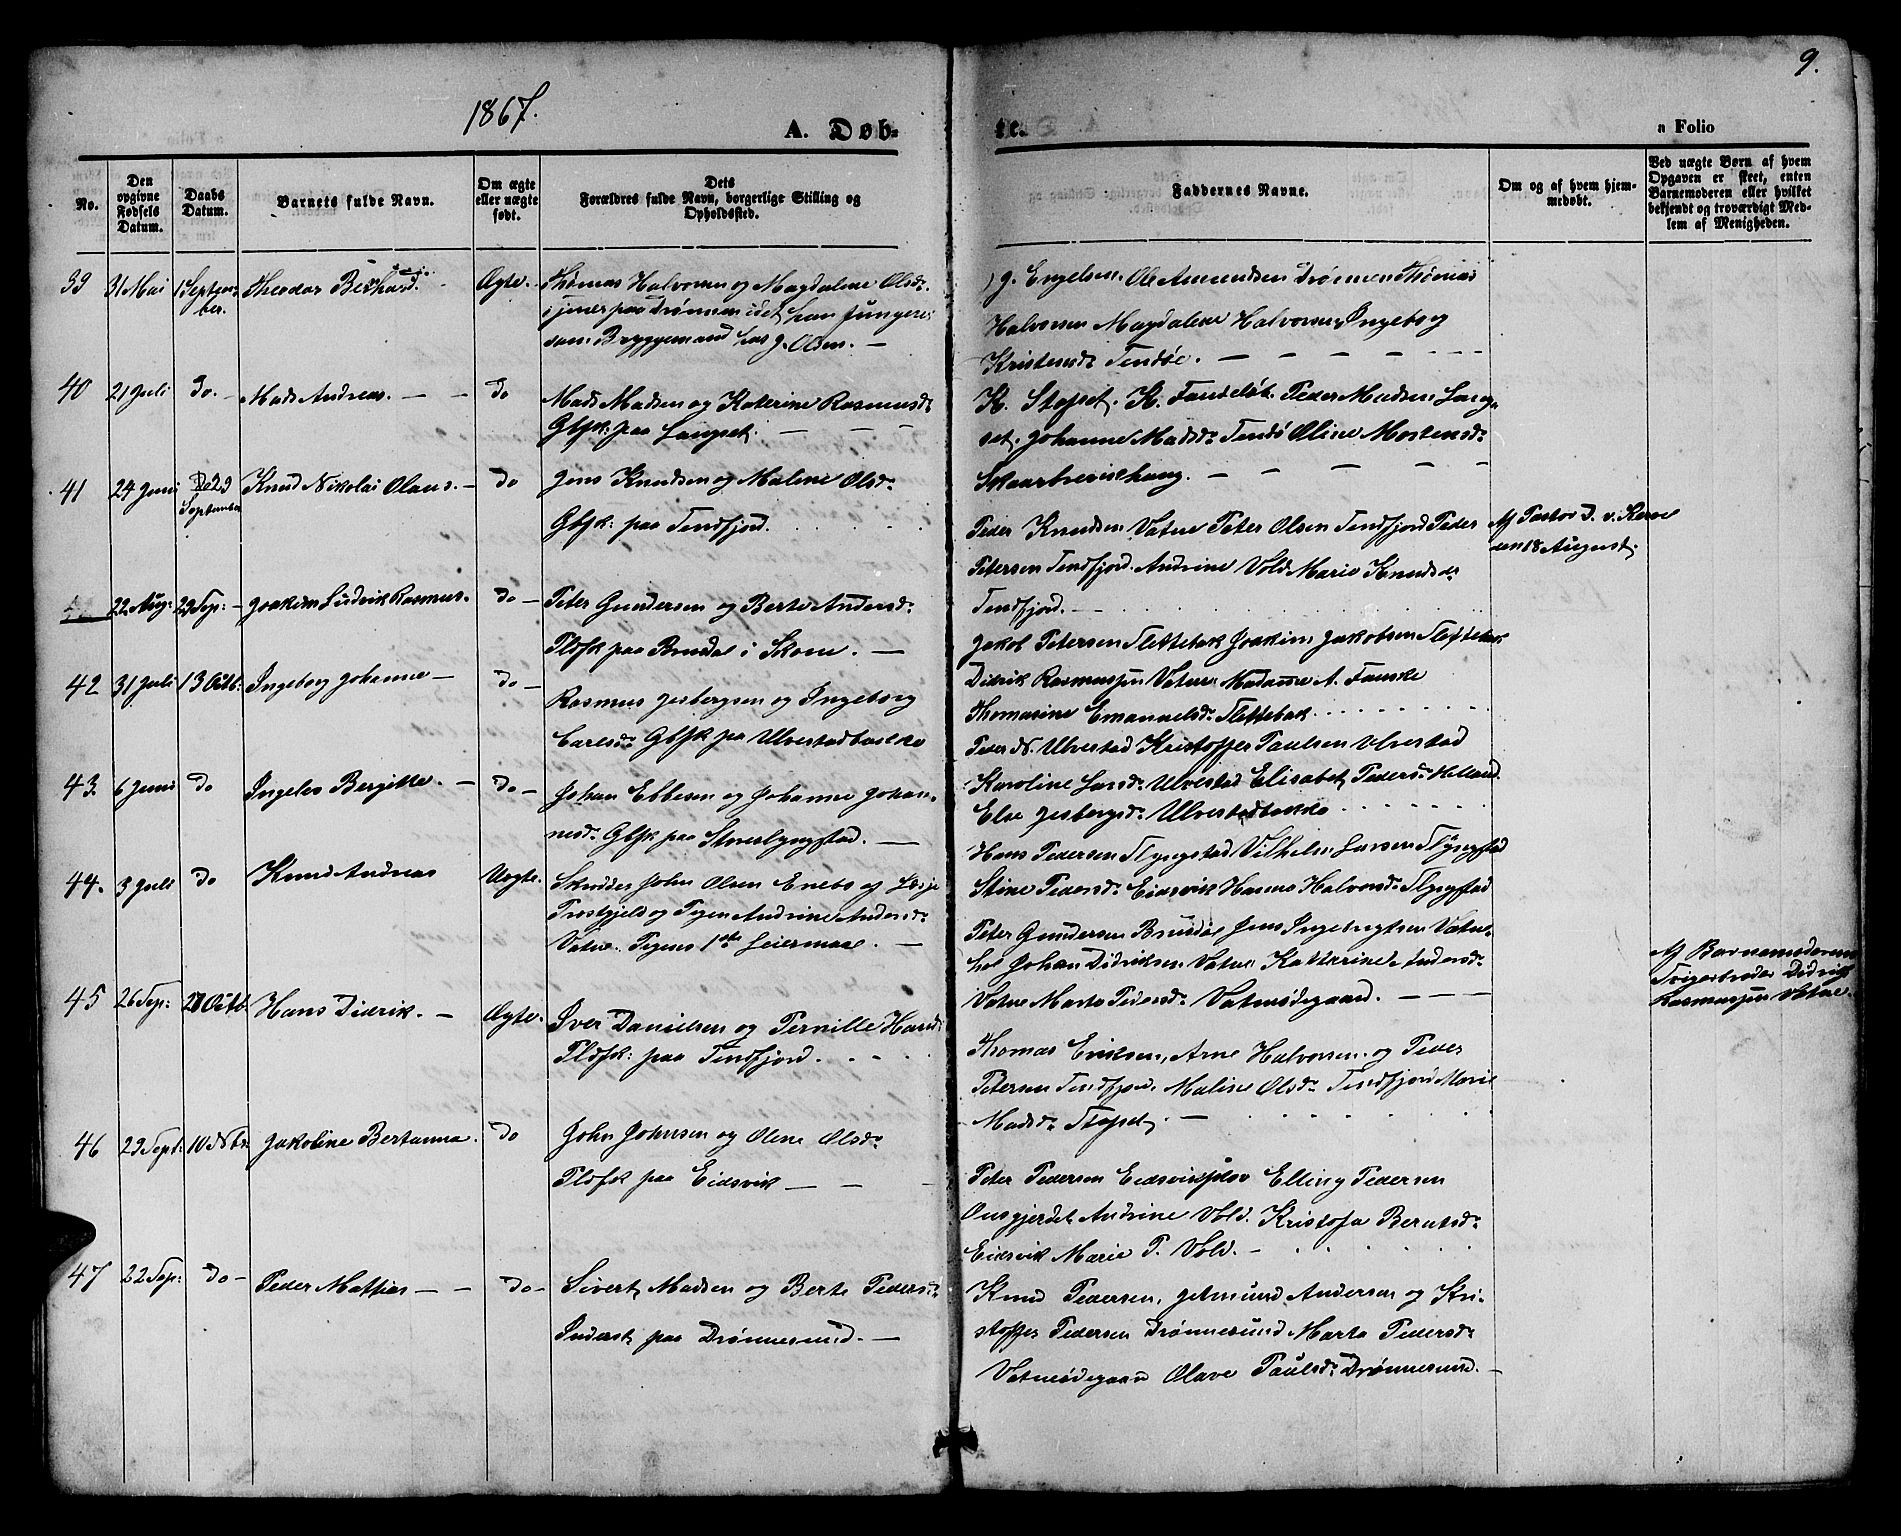 1867.
9.
A. Døb-
te.
a Folio
No.
Den opgivne Fødsels Datum.
Daabs Datum.
Barnets fulde Navn.
Om ægte eller uægte født.
Dets Forældres fulde Navn, borgerlige Stilling og Opholdssted.
Faddernes Navne.
Om og af hvem hjemmedøbt.
Ved uægte Børn af hvem Opgaven er skeet, enten Barnemoderen eller hvilket bekjendt og troværdigt Medlem af Menigheden.
39 31 Mai 1 September. Theodor Bernhard. Ægte.
Thomas Halvorsen og Magdalene Olsdr
som Bryggemand hos J. Olsen.
J. Engelsen. Ole Amundsen Drønnen Thomas
Halvorsen Magdalene Halvorsen, Ingeborg
Kristensdr Tendøe.
40 21 Juli Do. Mads Andreas. Do
Mads Madsen og Katerine Rasmusdr
Gbfk: paa Langset.
K. Stopset. Peder Madsen Lang-
set. Johanne Madsdr Oline Mortensdr
41 24 Juni 22 September Knud Nikolai Olaus. Do
Jens Knudsen og Maline Olsdr
Gbfk: paa Tendfjord.
Peder Knudsen Vatne Peter Olsen Tendfjord Peder
Petersen Tendfjord. Andrine Vold Marie Knudsdr
Tendfjord.
Af Pastor
den 18 August.
22 Aug: 22 Sep: Joakim Ludvik Rasmus. Do
Peter Gundersen og Berte Andersdr
Plsfk paa Brusdal i Skove.
Jakob Petersen Slettebak Joakim Jakobsen Slettebak
Didrik Rasmussen Vatne Madame A. Fauske
Thomasine Emanuelsdr Slettebak
42 31 Juli 13 Octb: Ingeborg Johanne Do
Rasmus Jesbergsen og Ingeborg
Carlsdr Gbfk paa Ulvestadbakke
Peder N. Ulvestad Kristoffer Paulsen Ulvestad
Karoline Larsdr Ulvestad Elisabet Pedersdr Helland
Else Jesbergsdr Ulvestadbakke
43. 6 Juni Do Ingeles Bergitte. Do
Johan Ebbesen og Johanne Johan-
nesdr Gbfk paa Storeflyngstad.
Hans Pedersen Flyngstad Vilhelm Larsen Flyngstad
Stine Pedersdr Eidsvik Hanna Halvorsdr Flyngstad
44. 3 Juli Do Knud Andreas Uægte.
Skrædder John Olsen Enebo
Præstgjeld og Pigen Andrine Andersdr
Vatne. Pigens 1ste Leiermaal.
Peter Gundersen Brusdal Jens Ingebrigtsen Vatne-
hol Johan Didriksen Vatne Katterine Andersdr
Vatne Marta Pedersdr Vatneødegaard.
Af Barnemoderens
Svigerbroder Didrik
Rasmussen Vatne.
45 26 Sep: 27 Octb Hans Didrik. Ægte.
Iver Danielsen og Pernille Hansdr
Plsfk: paa Tendfjord.
Thomas Eriksen, Arne Halvorsen og Peder
Petersen Tendfjord. Maline Olsdr Tendfjord Marie
Madsdr Stopset.
46 23 Sept: 10 Nbr. Jakoline Bertanna. Do
John Johnsen og Olene Olsdr
Plsfk paa Eidsvik
Peter Pedersen Elling Pedersen
Andrine Vold. Kristofa Berntsdr
Eidsvik Marie P. Vold.
47 22 Sep: Do Peder Mathias Do
Sivert Madsen og Berte Pedersdr
Inderst paa Drønnesund.
Knud Pedersen, Amund Andersen og Kri-
stoffer Pedersen Drønnesund Marta Pedersdr
Vatneødegaard Olave Paulsdr Drønnesund.